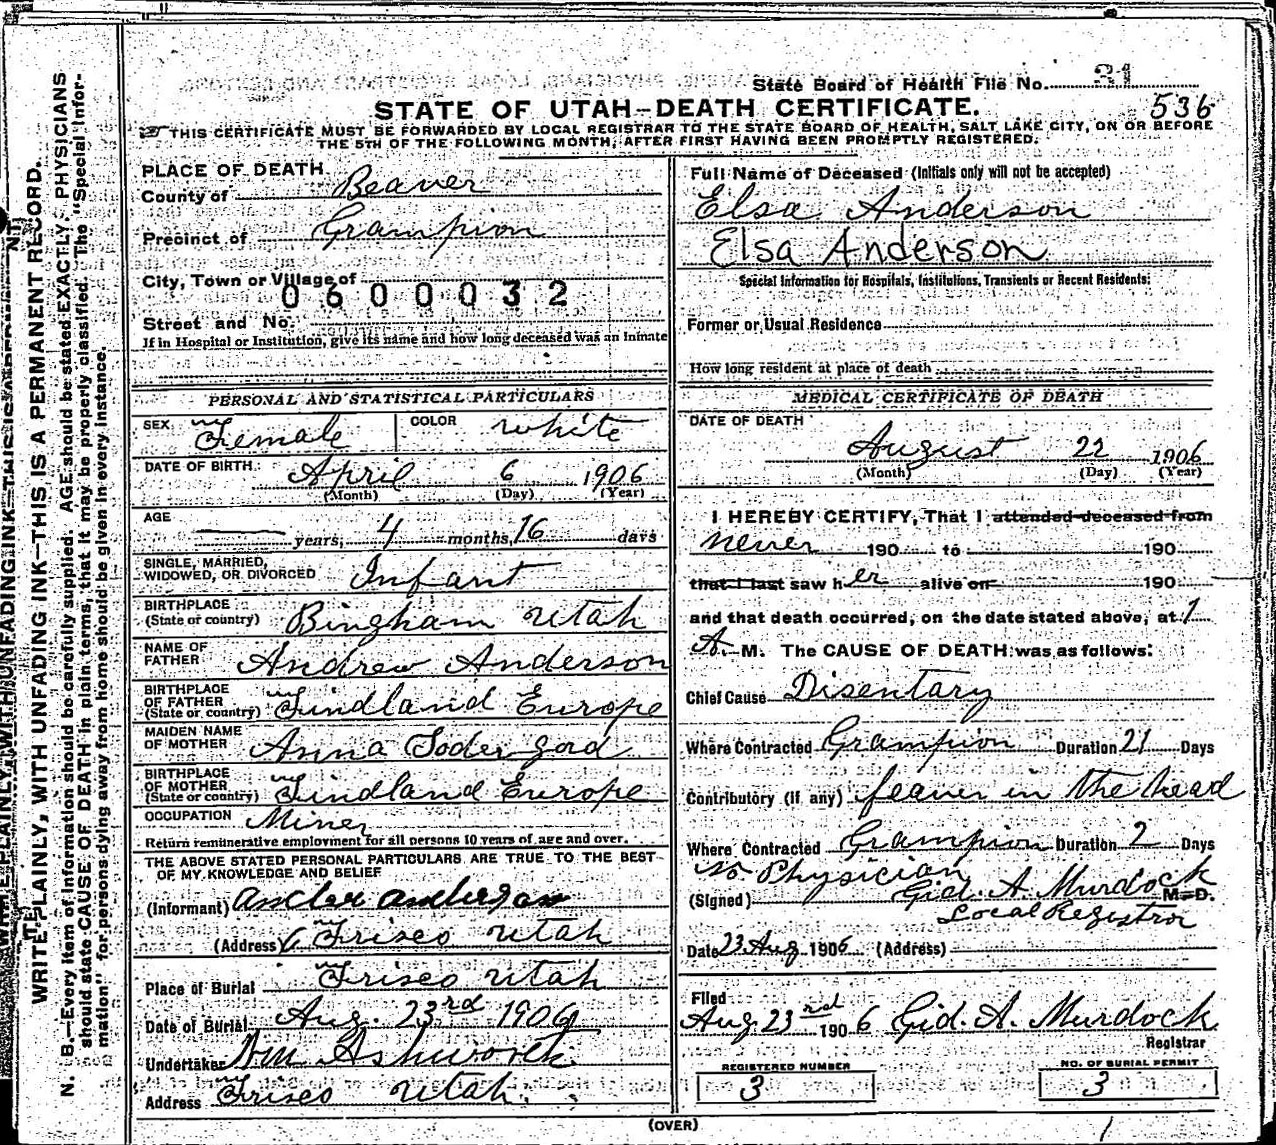 State Board of Health File No. 31
STATE OF UTAH—DEATH CERTIFICATE.
536
THIS CERTIFICATE MUST BE FORWARDED BY LOCAL REGISTRAR TO THE STATE BOARD OF HEALTH, SALT LAKE CITY, ON OR BEFORE
THE 5TH OF THE FOLLOWING MONTH, AFTER FIRST HAVING BEEN PROMPTLY REGISTERED.
WRITE PLAINLY, WITH UNFADING INK—THIS IS A PERMANENT RECORD.
N. B.—Every item of information should be carefully supplied. AGE should be stated EXACTLY. PHYSICIANS
should state CAUSE OF DEATH in plain terms, that it may be properly classified. The "Special Infor-
mation" for persons dying away from home should be given in every instance.
PLACE OF DEATH
County of Beaver
Precinct of Grampion
City, Town or Village of
0600032
Street and No.
If in Hospital or Institution, give its name and how long deceased was an inmate
PERSONAL AND STATISTICAL PARTICULARS
SEX Female COLOR white
DATE OF BIRTH April 6 1906
(Month) (Day) (Year)
AGE years, 4 months, 16 days
SINGLE, MARRIED,
WIDOWED, OR DIVORCED Infant
BIRTHPLACE
(State or country) Bingham Utah
NAME OF
FATHER Andrew Anderson
BIRTHPLACE
OF FATHER
(State or country) Findland Europe
MAIDEN NAME
OF MOTHER Anna Sodergord
BIRTHPLACE
OF MOTHER
(State or country) Findland Europe
OCCUPATION Miner
Return remunerative employment for all persons 10 years of age and over.
THE ABOVE STATED PERSONAL PARTICULARS ARE TRUE TO THE BEST
OF MY KNOWLEDGE AND BELIEF
(Informant)
(Address) Frisco Utah
Place of Burial Frisco Utah
Date of Burial Aug. 23rd 1906
Undertaker Wm Ashworth
Address Frisco Utah.
Full Name of Deceased (Initials only will not be accepted)
Elsa Anderson
Elsa Anderson
Special Information for Hospitals, Institutions, Transients or Recent Residents:
Former or Usual Residence
How long resident at place of death
MEDICAL CERTIFICATE OF DEATH
DATE OF DEATH
August 22 1906
(Month) (Day) (Year)
I HEREBY CERTIFY, That I attended deceased from
never 190 to 190
that I last saw her alive on 190
and that death occurred, on the date stated above, at 1
A. M. The CAUSE OF DEATH was as follows:
Chief Cause Disentary
Where Contracted Grampion Duration 21 Days
Contributory (if any) feaver in the head
Where Contracted Grampion Duration 2 Days
No Physician
(Signed) Gid. A. Murdock M. D.
Local Registror
Date 23 Aug 1906 (Address)
Filed
Aug 23rd 1906 Gid. A. Murdock
Registrar
REGISTERED NUMBER
3
NO. OF BURIAL PERMIT
3
(OVER)